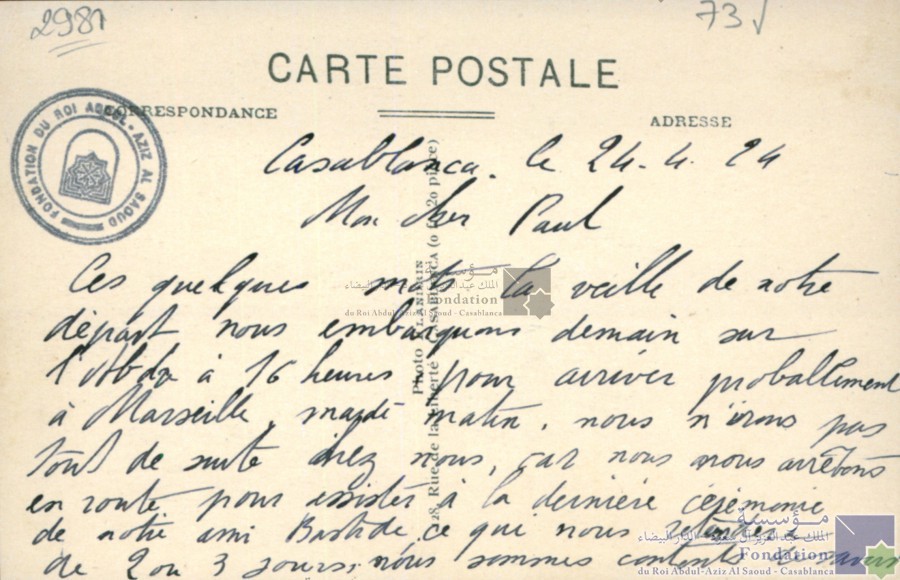 2981
73
CARTE POSTALE
CORRESPONDANCE
ADRESSE
FONDATION DU ROI ABDUL-AZIZ AL SAOUD
Casablanca. le 24.4.24
Mon cher Paul
Ces quelques mots la veille de notre
départ nous embarquons demain sur
l'Abda à 16 heures pour arriver proballement
à Marseille mardi matin, nous n'irons pas
tout de suite chez nous, car nous nous arrêtons
en route pour assister à la dernière cérémonie
de notre ami Bastide ce qui nous
de 2 ou 3 jours, nous sommes
Photo FLANDRIN
Rue de la Liberté CASABLANCA
مؤسسة
الملك عبد العزيز آل سعود - الدار البيضاء
Fondation
du Roi Abdul-Aziz Al Saoud - Casablanca
مؤسسة
الملك عبد العزيز آل سعود - الدار البيضاء
Fondation
du Roi Abdul-Aziz Al Saoud - Casablanca